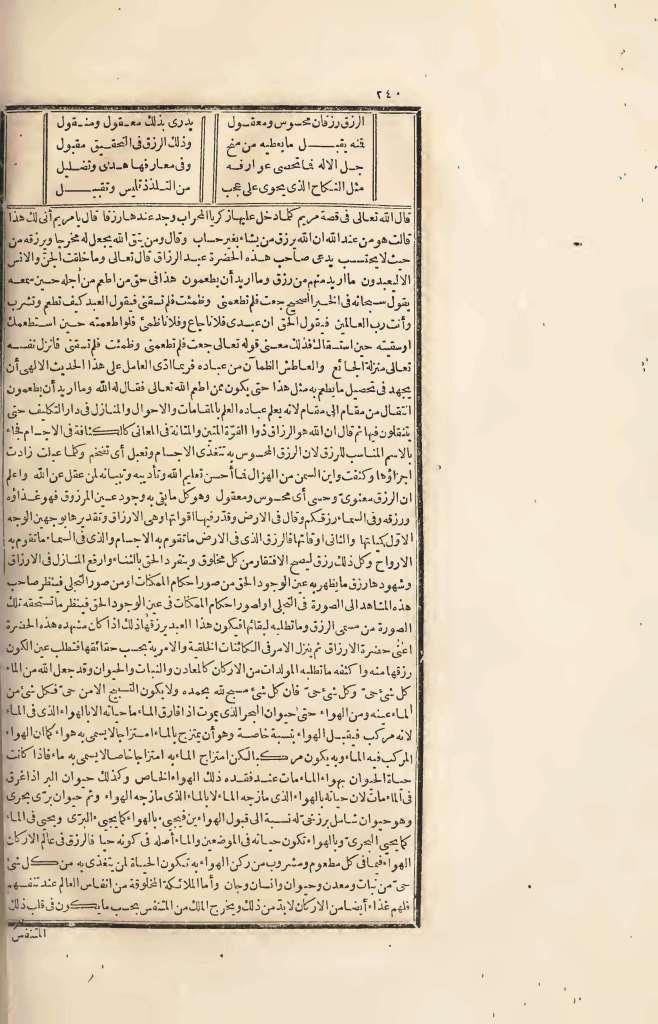 ٢٤٠
الرزق رزقان محسوس ومعقول يدرى بذلك معقول ومنقول
فمنه يقبل ما يعطيه من منح وذلك الرزق في التحقيق مقبول
جل الاله فما تحصى عوارفه وفى معارفها هدى وتضليل
مثل النكاح الذى يحوى على عجب من التلذذ تأنيس وتقبيل
قال الله تعالى فى قصة مريم كلما دخل عليها زكريا المحراب وجد عندها رزقا قال يا مريم أنى لك هذا
قالت هو من عند الله ان الله يرزق من يشاء بغير حساب وقال ومن يتق الله يجعل له مخرجا ويرزقه من
حيث لا يحتسب يدعى صاحب هذه الحضرة عبد الرزاق قال تعالى وما خلقت الجن والانس
الا ليعبدون ما اريد منهم من رزق وما اريد أن يطعمون هذا فى حق من اطعم من أجله حين سمعه
يقول سبحانه فى الخبر الصحيح جعت فلم تطعمنى وظمئت فلم تسقنى فيقول العبد كيف تطعم وتشرب
وأنت رب العالمين فيقول الحق ان عبدى فلانا جاع وفلانا ظمئ فلو اطعمته حين استطعمك
او سقيته حين استسقاك فذلك معنى قوله تعالى جعت فلم تطعمنى وظمئت فلم تسقنى فانزل نفسه
تعالى منزلة الجائع والعاطش الظمآن من عباده فربما أدى العامل على هذا الحديث الالهى أن
يجهد فى تحصيل ما يطعم به مثل هذا حتى يكون ممن اطعم الله تعالى فقال له الله وما اريد أن يطعمون
انتقال من مقام الى مقام لانه يعلم عباده العلم بالمقامات والاحوال والمنازل فى دار التكليف حتى
ينتقلون فيها ثم قال ان الله هو الرزاق ذوا القوة المتين والمتانة فى المعانى كالكثافة فى الاجسام فجاء
بالاسم المناسب للرزق لان الرزق المحسوس به تتغذى الاجسام وتعبل أى تضخم وكلما عبلت زادت
اجزاؤها وكثفت واين السمن من الهزال فما أحسن تعليم الله وتأديبه وتبيانه لمن عقل عن الله واعلم
ان الرزق معنوى وحسى أى محسوس ومعقول وهو كل ما بقى به وجود عين المرزوق فهو غذاؤه
ورزقه وفى السماء رزقكم وقال فى الارض وقدر فيها اقواتها وهى الارزاق وتقديرها بوجهين الوجه
الاول كمياتها والثانى اوقاتها فالرزق الذى فى الارض ما تقوم به الاجسام والذى فى السماء ما تقوم به
الارواح وكل ذلك رزق ليصح الافتقار من كل مخلوق وينفرد الحق بالثناء وارفع المنازل فى الارزاق
وشهودها رزق ما يظهر به عين الوجود الحق من صور احكام الممكنات او من صور التجلى فينظر صاحب
هذه المشاهد الى الصورة فى التجلى او لصور احكام الممكنات فى عين الوجود الحق فينظر ما تستحقه تلك
الصورة من مسمى الرزق وما تطلبه لبقائها فيكون هذا العبد يرزقها ذلك اذا كان مشهده هذه الحضرة
اعنى حضرة الارزاق ثم ينزل الامر فى الكائنات الخلقية والامرية بحسب حقائقها فتطلب عين الكون
رزقها منه واكثفه ما تطلبه المولدات من الاركان كالمعادن والنبات والحيوان وقد جعل الله من الماء
كل شئ حى وكل شئ حى فان كل شئ مسبح لله بحمده ولا يكون التسبيح الا من حى فكل شئ من
الماء عينه ومن الهواء حتى حيوان البحر الذى يموت اذا فارق الماء ما حياته الا بالهواء الذى فى الماء
لانه مركب فيقبل الهواء بنسبة خاصة وهو أن يمتزج بالماء امتزاجا لا يسمى به هواء كما ان الهواء
المركب فيه الماء وبه يكون مركبا لكن امتزاج الماء به امتزاجا خاصا لا يسمى به ماء فاذا كانت
حياة الحيوان بهواء الماء مات عند فقده ذلك الهواء الخاص وكذلك حيوان البر اذا غرق
فى الماء مات لان حياته بالهواء الذى مازجه الماء لا بالماء الذى مازجه الهواء وثم حيوان برى بحرى
وهو حيوان شامل برزخى له نسبة الى قبول الهواءين فيحيى بالهواء كما يحيى البرى ويحيى فى الماء
كما يحيى البحرى وبالهواء تكون حياته فى الموضعين والماء أصله فى كونه حيا فالرزق فى عالم الاركان
الهواء فبما فى كل مطعوم ومشروب من ركن الهواء به تكون الحياة لمن يتغذى به من كل شئ
حى من نبات ومعدن وحيوان وانسان وجان وأما الملائكة المخلوقة من انفاس العالم عند تنفسهم
فلهم غذاء أيضا من الاركان لا بد من ذلك ويخرج الملك من المتنفس بحسب ما يكون فى قلب ذلك
المتنفس